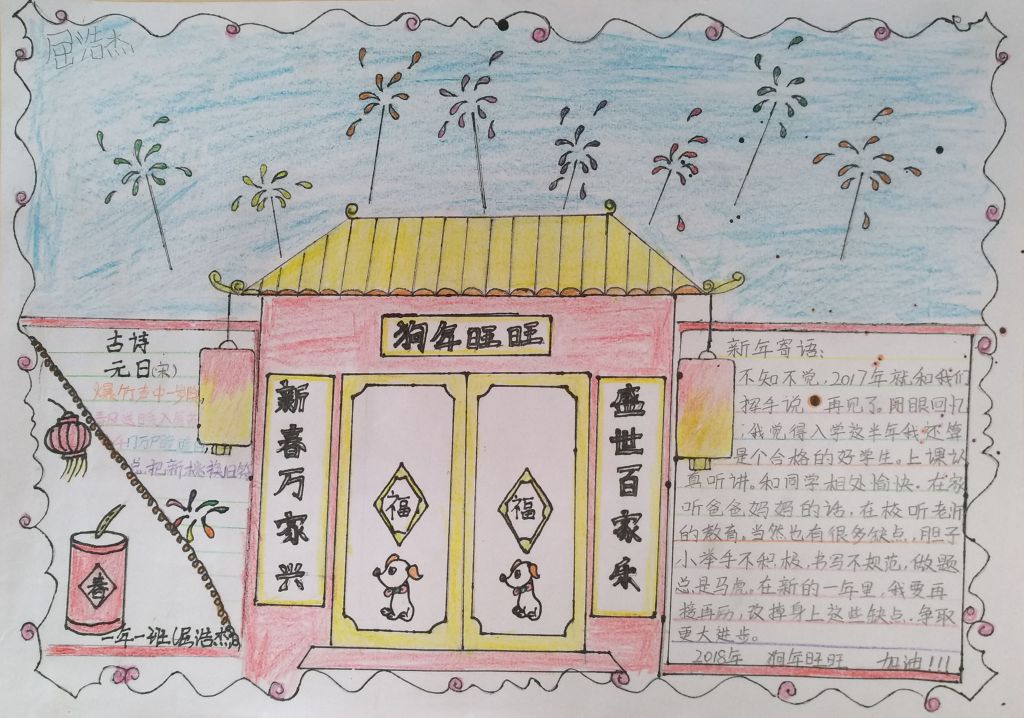 屈浩杰
狗年旺旺
新春万家兴
盛世百家乐
福
福
古诗
元日(宋)
爆竹声中一岁除
春风送暖入屠苏
千门万户曈曈
总把新桃换旧符
春
二年一班(屈浩杰)
新年寄语:
不知不觉,2017年就和我们
挥手说 再见了。闭眼回忆
我觉得入学这半年我还算
是个合格的好学生。上课认
真听讲。和同学相处愉快。在家
听爸爸妈妈的话,在校听老师
的教育。当然也有很多缺点,胆子
小举手不积极,书写不规范,做题
总是马虎。在新的一年里,我要再
接再厉,改掉身上这些缺点,争取
更大进步。
2018年 狗年旺旺 加油!!!